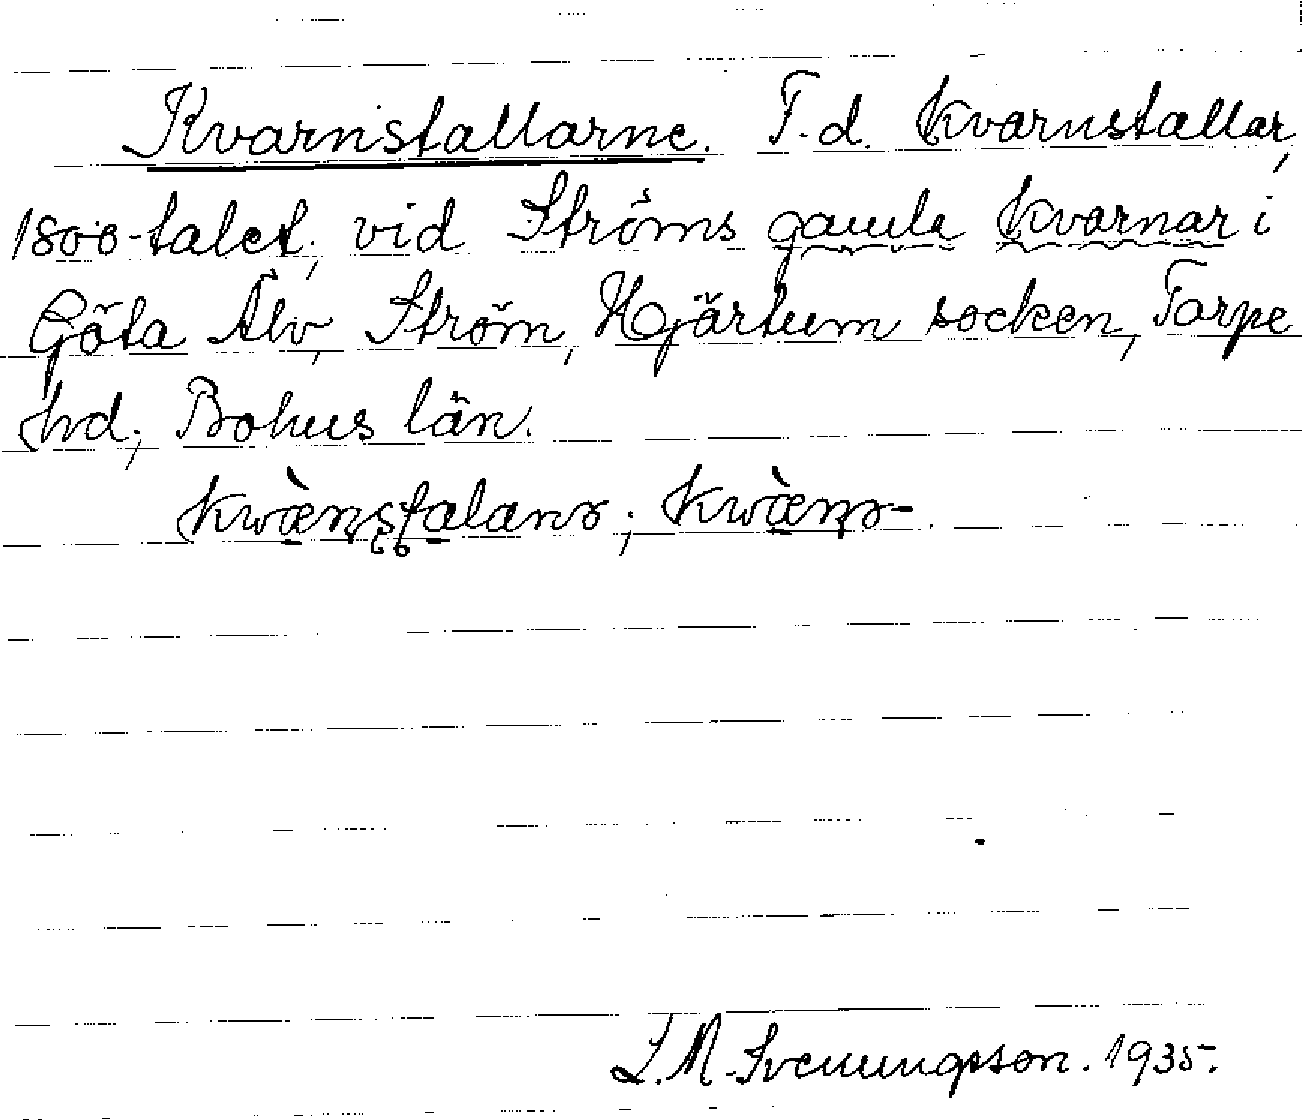 Kvarnstallarne. F.d. kvarnstallar,
1800-talet, vid Ströms gamla kvarnar i
Göta Älv, Ström, Hjärtum socken, Torpe
hrd, Bohus län.
kwæ̀ṇṣtalanɘ; kwæ̀ṇɘ-.
L. M. Svenungsson. 1935.